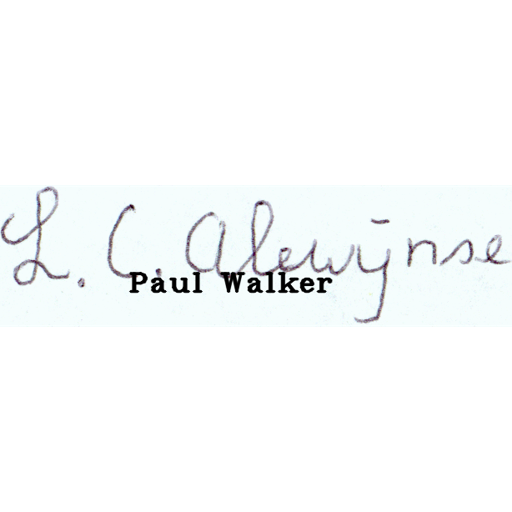 L. C. Alewijnse
Paul Walker